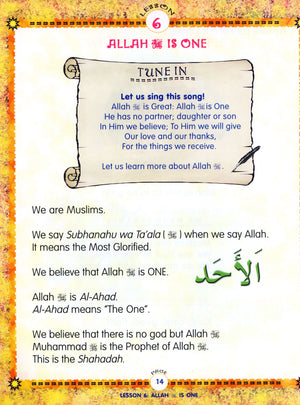 LESSON
6
ALLAH ﷻ IS ONE
TUNE IN
Let us sing this song!
Allah ﷻ is Great: Allah ﷻ is One
He has no partner; daughter or son
In Him we believe; To Him we will give
Our love and our thanks,
For the things we receive.
Let us learn more about Allah ﷻ.
We are Muslims.
We say Subhanahu wa Ta'ala ( ﷻ ) when we say Allah.
It means the Most Glorified.
We believe that Allah ﷻ is ONE.
اَلأَحَد
Allah ﷻ is Al-Ahad.
Al-Ahad means "The One".
We believe that there is no god but Allah ﷻ
Muhammad ﷺ is the Prophet of Allah ﷻ.
This is the Shahadah.
PAGE
14
LESSON 6: ALLAH ﷻ IS ONE